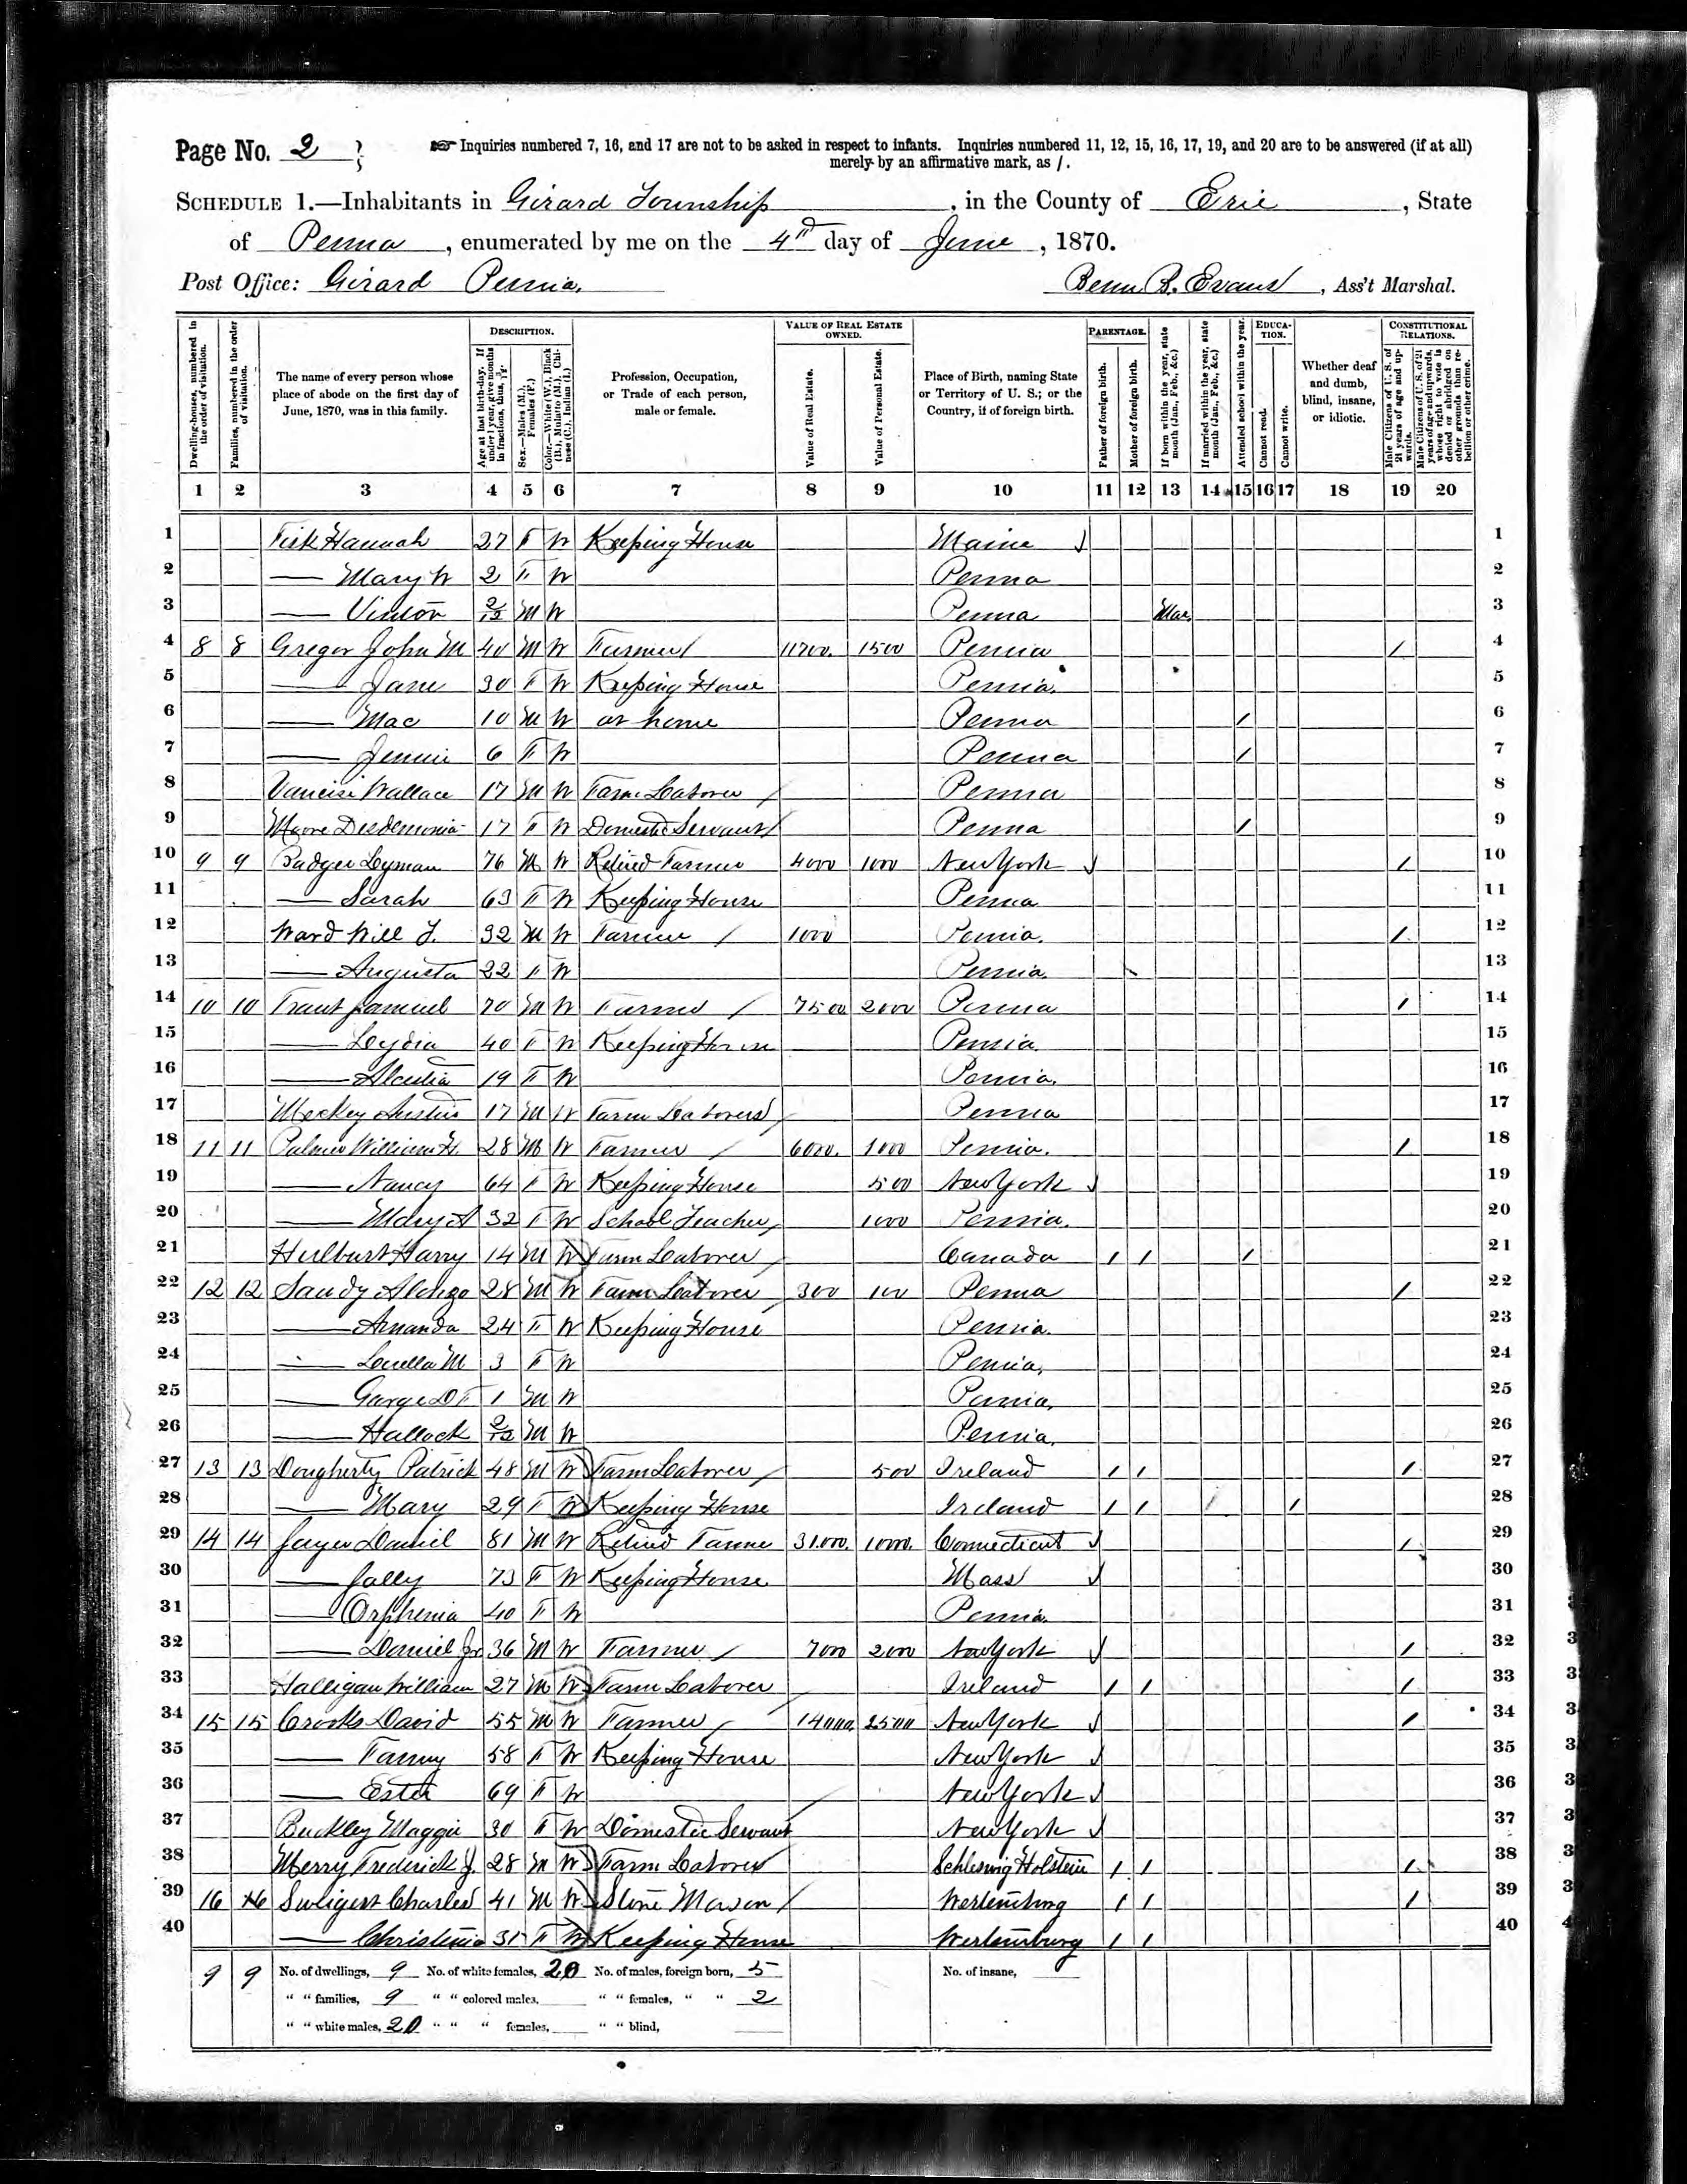 Page No. 2
Inquiries numbered 7, 16, and 17 are not to be asked in respect to infants. Inquiries numbered 11, 12, 15, 16, 17, 19, and 20 are to be answered (if at all)
merely by an affirmative mark, as /.
SCHEDULE 1.—Inhabitants in Girard Township, in the County of Erie, State
of Penna, enumerated by me on the 4th day of June, 1870.
Post Office: Girard Penna. Benn. B. Evans, Ass't Marshal.
Dwelling-houses, numbered in the order of visitation.
Families, numbered in the order of visitation.
The name of every person whose place of abode on the first day of June, 1870, was in this family.
DESCRIPTION.
Age at last birth-day. If under 1 year, give months in fractions, thus, 3/12.
Sex.—Males (M.), Females (F.)
Color.—White (W.), Black (B.), Mulatto (M.), Chinese (C.), Indian (I.)
Profession, Occupation, or Trade of each person, male or female.
VALUE OF REAL ESTATE OWNED.
Value of Real Estate.
Value of Personal Estate.
Place of Birth, naming State or Territory of U. S.; or the Country, if of foreign birth.
PARENTAGE.
Father of foreign birth.
Mother of foreign birth.
If born within the year, state month (Jan., Feb., &c.)
If married within the year, state month (Jan., Feb., &c.)
Attended school within the year.
EDUCATION.
Cannot read.
Cannot write.
Whether deaf and dumb, blind, insane, or idiotic.
CONSTITUTIONAL RELATIONS.
Male Citizens of U. S. of 21 years of age and upwards.
Male Citizens of U. S. of 21 years of age and upwards, whose right to vote is denied or abridged on other grounds than rebellion or other crime.
1 2 3 4 5 6 7 8 9 10 11 12 13 14 15 16 17 18 19 20
1 Fisk Hannah 27 F W Keeping House Maine 1
2 — Mary W 2 F W Penna 2
3 — Vinton 2/12 M W Penna Mar 3
4 8 8 Gregor John M 40 M W Farmer 11700. 1500 Penna / 4
5 — Jane 30 F W Keeping House Penna. 5
6 — Mac 10 M W at home Penna / 6
7 — Jennie 6 F W Penna / 7
8 Wallace 17 M W Farm Laborer Penna 8
9 Moore Desdemonia 17 F W Domestic Servant Penna / 9
10 9 9 Badger Lyman 76 M W Retired Farmer 4000 1000 New York / 10
11 — Sarah 63 F W Keeping House Penna 11
12 Ward Will J. 32 M W Farmer 1000 Penna. / 12
13 — Augusta 22 F W Penna. 13
14 10 10 Traut Samuel 70 M W Farmer 7500 2000 Penna / 14
15 — Lydia 40 F W Keeping House Penna 15
16 — 19 F W Penna. 16
17 17 M W Farm Laborer Penna 17
18 11 11 Palmer William H. 28 M W Farmer 6000. 1000 Penna. / 18
19 — Nancy 64 F W Keeping House 500 New York 19
20 — Mary A 32 F W School Teacher 1000 Penna. 20
21 Hulburt Harry 14 M W Farm Laborer Canada / / / 21
22 12 12 Sandy Alonzo 28 M W Farm Laborer 300 100 Penna / 22
23 — Amanda 24 F W Keeping House Penna. 23
24 — Louella M 3 F W Penna. 24
25 — George D F 1 M W Penna. 25
26 — Hallock 2/12 M W Penna. 26
27 13 13 Dougherty Patrick 48 M W Farm Laborer 500 Ireland / / / 27
28 — Mary 29 F W Keeping House Ireland / / / 28
29 14 14 Daniel 81 M W Retired Farmer 31.000. 10000. Connecticut / 29
30 — Sally 73 F W Keeping House Mass 30
31 — Orphenia 40 F W Penna. 31
32 — Daniel Jr 36 M W Farmer 7000 2000 New York / 32
33 Halligan William 27 M W Farm Laborer Ireland / / / 33
34 15 15 Crooks David 55 M W Farmer 14000 2500 New York / 34
35 — Fanny 58 F W Keeping House New York 35
36 — Ester 69 F W New York 36
37 Buckley Maggie 30 F W Domestic Servant New York 37
38 Merry Frederick J. 28 M W Farm Laborer Schleswig Holstein / / / 38
39 16 16 Charles 41 M W Stone Mason Wertemburg / / / 39
40 — Christenia 31 F W Keeping House Wertemburg / / 40
9 9 No. of dwellings, 9 No. of white females, 20 No. of males, foreign born, 5 No. of insane,
" " families, 9 " " colored males, " " females, " " 2
" " white males, 20 " " " females, " " blind,